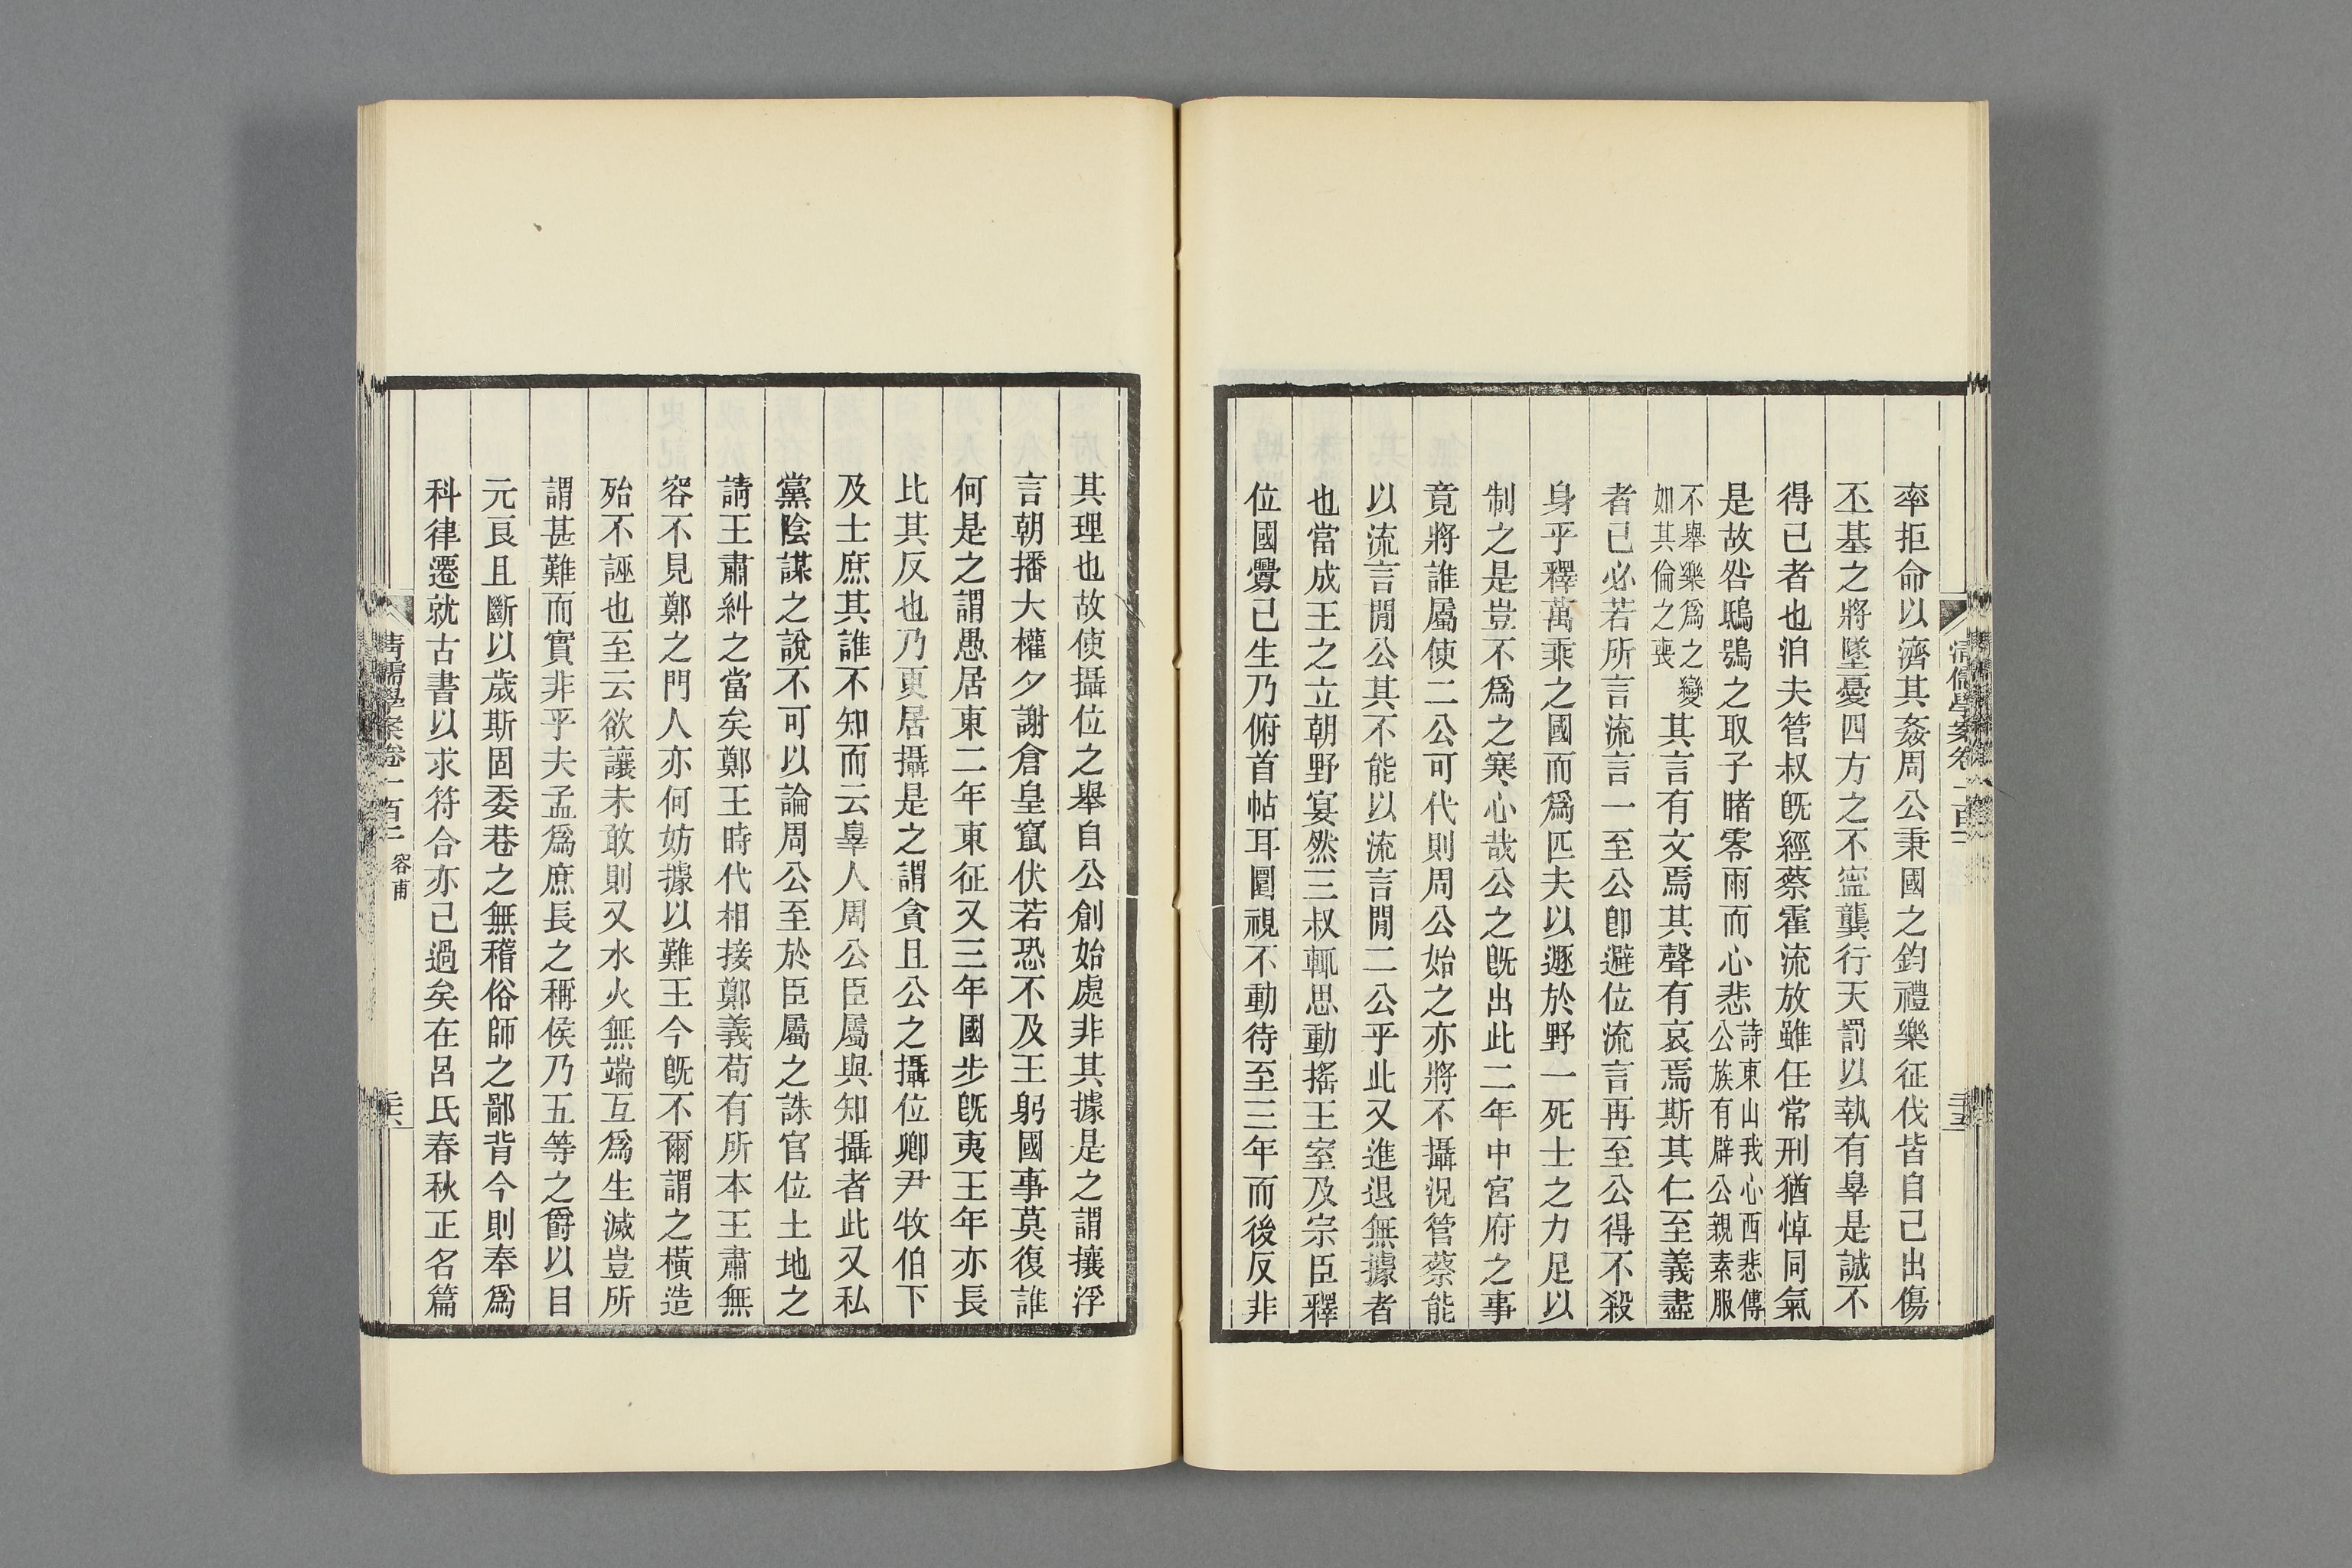 清儒學案卷一百二
三五
率拒命以濟其姦周公秉國之鈞禮樂征伐皆自己出傷
丕基之將墜憂四方之不寍龔行天罰以執有辠是誠不
得已者也洎夫管叔旣經蔡霍流放雖任常刑猶悼同氣
是故咎鴟鴞之取子睹零雨而心悲詩東山我心西悲傳公族有辟公親素服
不舉樂爲之變如其倫之喪其言有文焉其聲有哀焉斯其仁至義盡
者已必若所言流言一至公卽避位流言再至公得不殺
身乎釋萬乘之國而爲匹夫以遯於野一死士之力足以
制之是豈不爲之寒心哉公之旣出此二年中宮府之事
竟將誰屬使二公可代則周公始之亦將不攝況管蔡能
以流言閒公其不能以流言閒二公乎此又進退無據者
也當成王之立朝野宴然三叔輒思動搖王室及宗臣釋
位國釁已生乃俯首帖耳圜視不動待至三年而後反非
其理也故使攝位之舉自公創始處非其據是之謂攘浮
言朝播大權夕謝倉皇竄伏若恐不及王躬國事莫復誰
何是之謂愚居東二年東征又三年國步旣夷王年亦長
比其反也乃更居攝是之謂貪且公之攝位卿尹牧伯下
及士庶其誰不知而云辠人周公臣屬與知攝者此又私
黨陰謀之說不可以論周公至於臣屬之誅官位土地之
請王肅糾之當矣鄭王時代相接鄭義苟有所本王肅無
容不見鄭之門人亦何妨據以難王今旣不爾謂之橫造
殆不誣也至云欲讓未敢則又水火無端互爲生滅豈所
謂甚難而實非乎夫孟爲庶長之稱侯乃五等之爵以目
元良且斷以歲斯固委巷之無稽俗師之鄙背今則奉爲
科律遷就古書以求符合亦已過矣在呂氏春秋正名篇
清儒學案卷一百二 容甫
三六